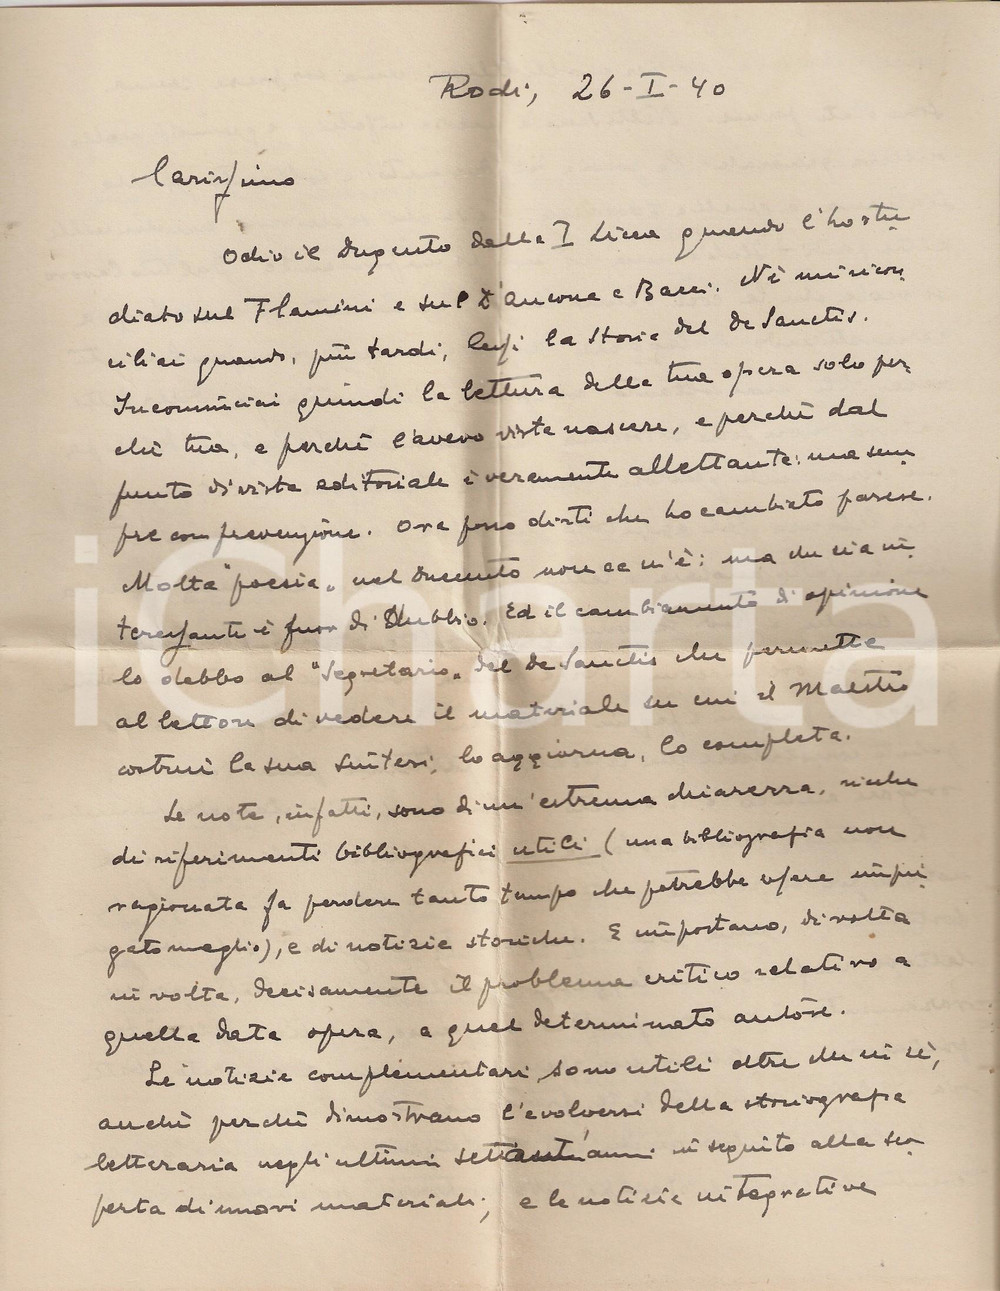 Rodi, 26-I-40
Carissimo
Odio il dugento dalla I Liceo quando l'ho stu-
diato sul Flamini e sul D'Ancona e Bacci. Né mi ricon-
ciliai quando, più tardi, lessi la Storia del De Sanctis.
Incominciai quindi la lettura della tua opera solo per-
ché tua, e perché l'avevo vista nascere, e perché dal
punto di vista editoriale è veramente allettante: ma sem-
pre con prevenzione. Ora posso dirti che ho cambiato parere.
Molta "poesia" nel duecento non ce n'è: ma che sia in-
teressante è fuor di dubbio. Ed il cambiamento di opinione
lo debbo al "Segretario" del De Sanctis che permette
al lettore di vedere il materiale su cui il Maestro
costruì la sua sintesi, lo aggiorna, lo completa.
Le note, infatti, sono di un'estrema chiarezza, ricche
di riferimenti bibliografici utili (una bibliografia non
ragionata fa perdere tanto tempo che potrebbe essere impie-
gato meglio), e di notizie storiche. E impostano, di volta
in volta, decisamente il problema critico relativo a
quella data opera, a quel determinato autore.
Le notizie complementari sono utili oltre che in sé,
anche perché dimostrano l'evolversi della storiografia
letteraria negli ultimi anni in seguito alla sco-
perta di nuovi materiali; e le notizie integrative
iCharta